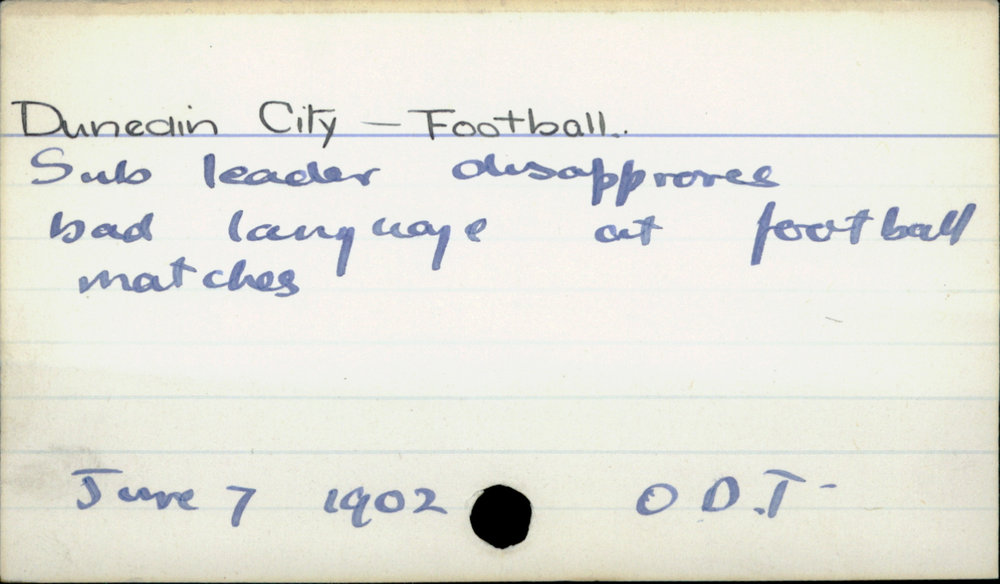 Dunedin City - Football.
Sub leader disapproves
bad language at football
matches
June 7 1902 O.D.T-